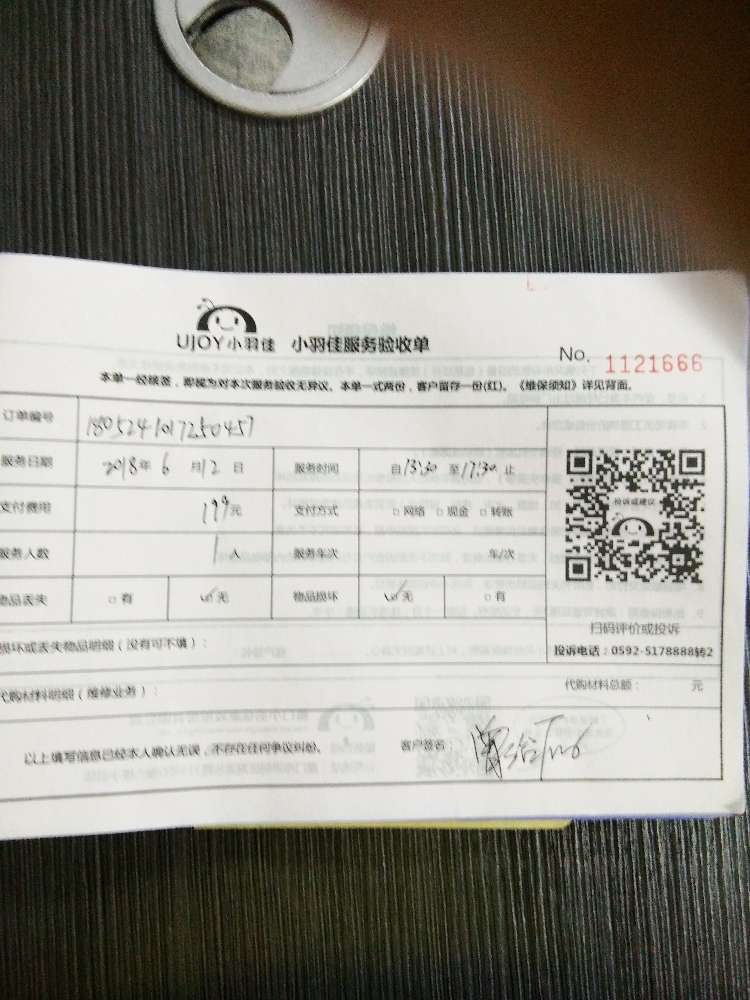 UJOY小羽佳 小羽佳服务验收单
No. 1121666
本单一经核签，即视为对本次服务验收无异议。本单一式两份，客户留存一份(红)。《维保须知》详见背面。
订单编号 180524101725045
服务日期 2018年 6 月 12 日 服务时间 自 13:30 至 17:30 止
支付费用 199元 支付方式 □网络 □现金 □转账
服务人数 1 人 服务车次 车/次
物品丢失 □有 ☑无 物品损坏 ☑无 □有
投诉或建议
扫码评价或投诉
投诉电话：0592-5178888转2
损坏或丢失物品明细（没有可不填）：
代购材料明细（维修业务）： 代购材料总额： 元
以上填写信息已经本人确认无误，不存在任何争议纠纷。 客户签名：